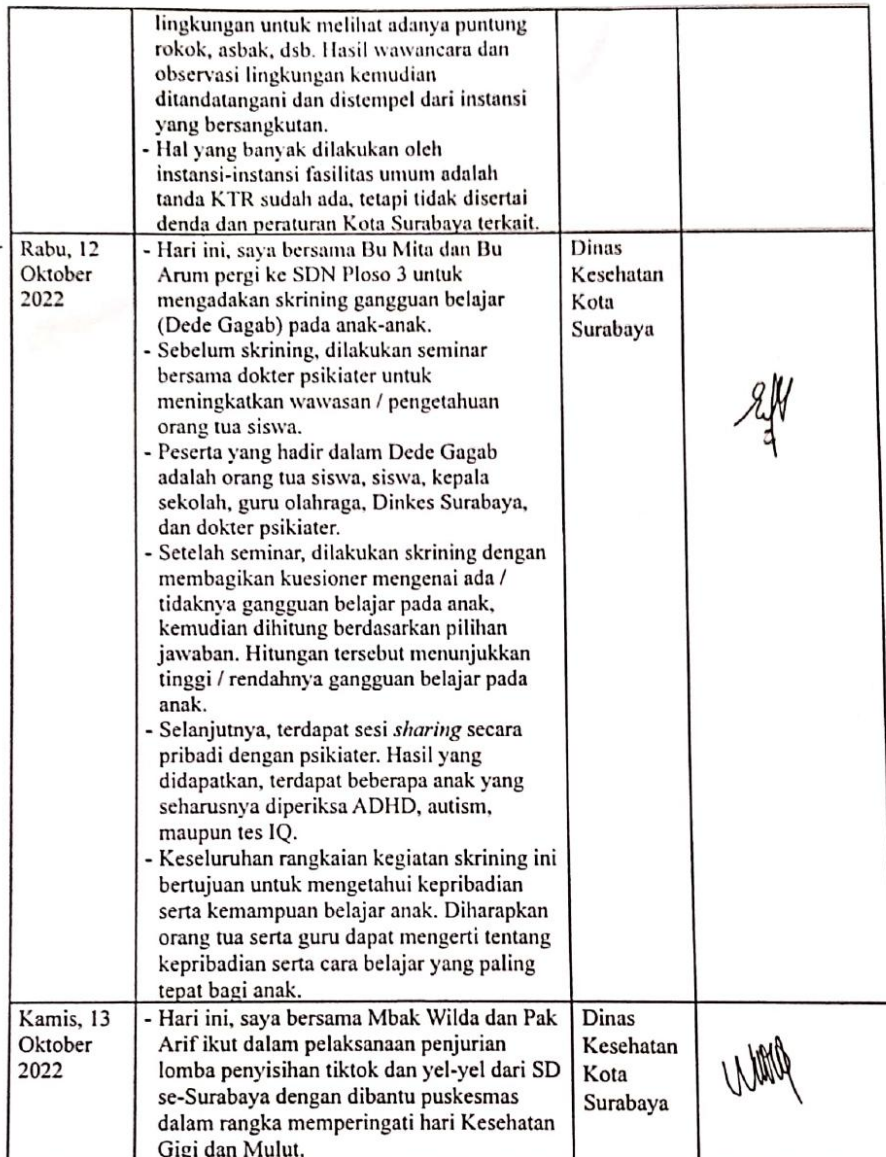 lingkungan untuk melihat adanya puntung
rokok, asbak, dsb. Hasil wawancara dan
observasi lingkungan kemudian
ditandatangani dan distempel dari instansi
yang bersangkutan.
- Hal yang banyak dilakukan oleh
instansi-instansi fasilitas umum adalah
tanda KTR sudah ada, tetapi tidak disertai
denda dan peraturan Kota Surabaya terkait.
Rabu, 12
Oktober
2022
- Hari ini, saya bersama Bu Mita dan Bu
Arum pergi ke SDN Ploso 3 untuk
mengadakan skrining gangguan belajar
(Dede Gagab) pada anak-anak.
- Sebelum skrining, dilakukan seminar
bersama dokter psikiater untuk
meningkatkan wawasan / pengetahuan
orang tua siswa.
- Peserta yang hadir dalam Dede Gagab
adalah orang tua siswa, siswa, kepala
sekolah, guru olahraga, Dinkes Surabaya,
dan dokter psikiater.
- Setelah seminar, dilakukan skrining dengan
membagikan kuesioner mengenai ada /
tidaknya gangguan belajar pada anak,
kemudian dihitung berdasarkan pilihan
jawaban. Hitungan tersebut menunjukkan
tinggi / rendahnya gangguan belajar pada
anak.
- Selanjutnya, terdapat sesi sharing secara
pribadi dengan psikiater. Hasil yang
didapatkan, terdapat beberapa anak yang
seharusnya diperiksa ADHD, autism,
maupun tes IQ.
- Keseluruhan rangkaian kegiatan skrining ini
bertujuan untuk mengetahui kepribadian
serta kemampuan belajar anak. Diharapkan
orang tua serta guru dapat mengerti tentang
kepribadian serta cara belajar yang paling
tepat bagi anak.
Dinas
Kesehatan
Kota
Surabaya
Kamis, 13
Oktober
2022
- Hari ini, saya bersama Mbak Wilda dan Pak
Arif ikut dalam pelaksanaan penjurian
lomba penyisihan tiktok dan yel-yel dari SD
se-Surabaya dengan dibantu puskesmas
dalam rangka memperingati hari Kesehatan
Gigi dan Mulut.
Dinas
Kesehatan
Kota
Surabaya